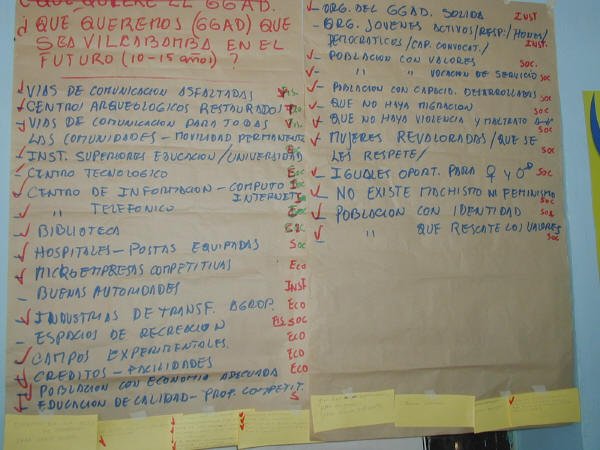 ¿QUE QUIERE EL GGAD.
¿ QUE QUEREMOS (GGAD) QUE
SEA VILCABAMBA EN EL
FUTURO (10-15 años) ?
VIAS DE COMUNICACION ASFALTADAS
CENTRO ARQUEOLOGICOS RESTAURADOS
VIAS DE COMUNICACION PARA TODAS
LAS COMUNIDADES - MOVILIDAD PERMANENTE
INST. SUPERIORES EDUCACION/UNIVERSIDAD
CENTRO TECNOLOGICO
CENTRO DE INFORMACION - COMPUTO
INTERNET
" TELEFONICO
BIBLIOTECA
HOSPITALES - POSTAS EQUIPADAS SOC
MICROEMPRESAS COMPETITIVAS ECO
BUENAS AUTORIDADES INST
INDUSTRIAS DE TRANSF. AGROP. ECO
ESPACIOS DE RECREACION FIS. SOC
CAMPOS EXPERIMENTALES ECO
CREDITOS - FACILIDADES ECO
POBLACION CON ECONOMIA ADECUADA ECO
EDUCACION DE CALIDAD - PROF. COMPETIT. S
ORG. DEL GGAD. SOLIDA INST
ORG. JOVENES ACTIVOS/RESP/HONES/
DEMOCRATICOS/CAP. CONVOCAT./ INST.
POBLACION CON VALORES SOC.
" " VOCACION DE SERVICIO SOC
POBLACION CON CAPACID. DESARROLLADAS SOC
QUE NO HAYA MIGRACION SOC
QUE NO HAYA VIOLENCIA Y MALTRATO SOC
MUJERES REVALORADAS/QUE SE
LES RESPETE/ SOC
IGUALES OPORT. PARA ♀ y ♂ SOC
NO EXISTE MACHISMO NI FEMINISMO SOC
POBLACION CON IDENTIDAD SOC
" QUE RESCATE LOS VALORES SOC